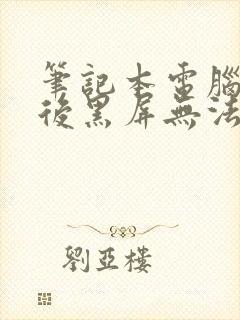 筆記本電腦
後黑屏無法
劉亞樓